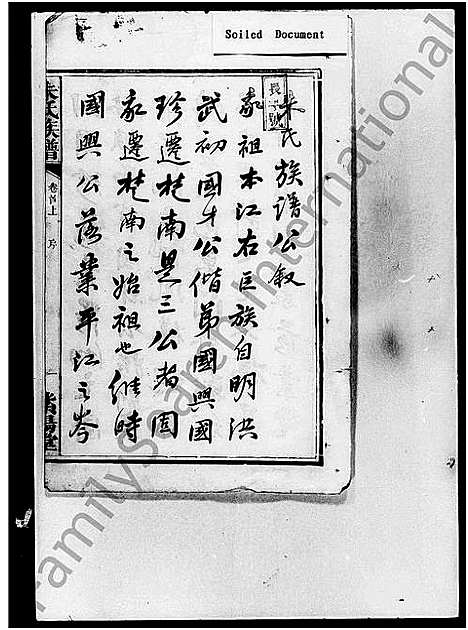 Soiled Document
長字號
朱氏族譜公敘
家祖本江右巨族自明洪
武初國才公偕弟國興國
珍遷楚南是三公者固
家遷楚南之始祖也維時
國興公落業平江之岑
朱氏族譜
卷首上
序
一
紫陽堂
FamilySearch International